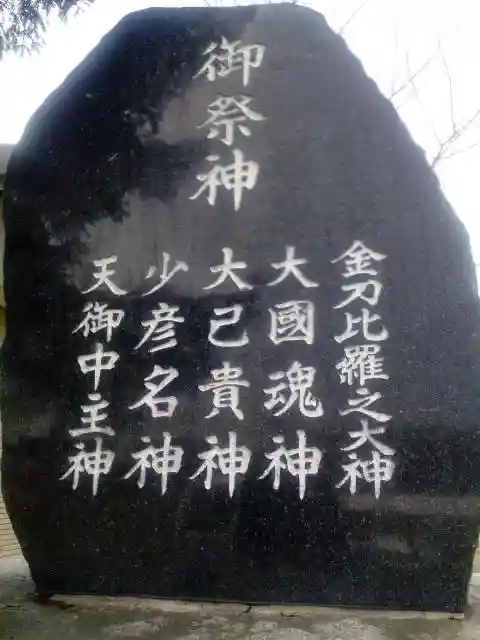 御祭神
金刀比羅之大神
大國魂神
大己貴神
少彦名神
天御中主神